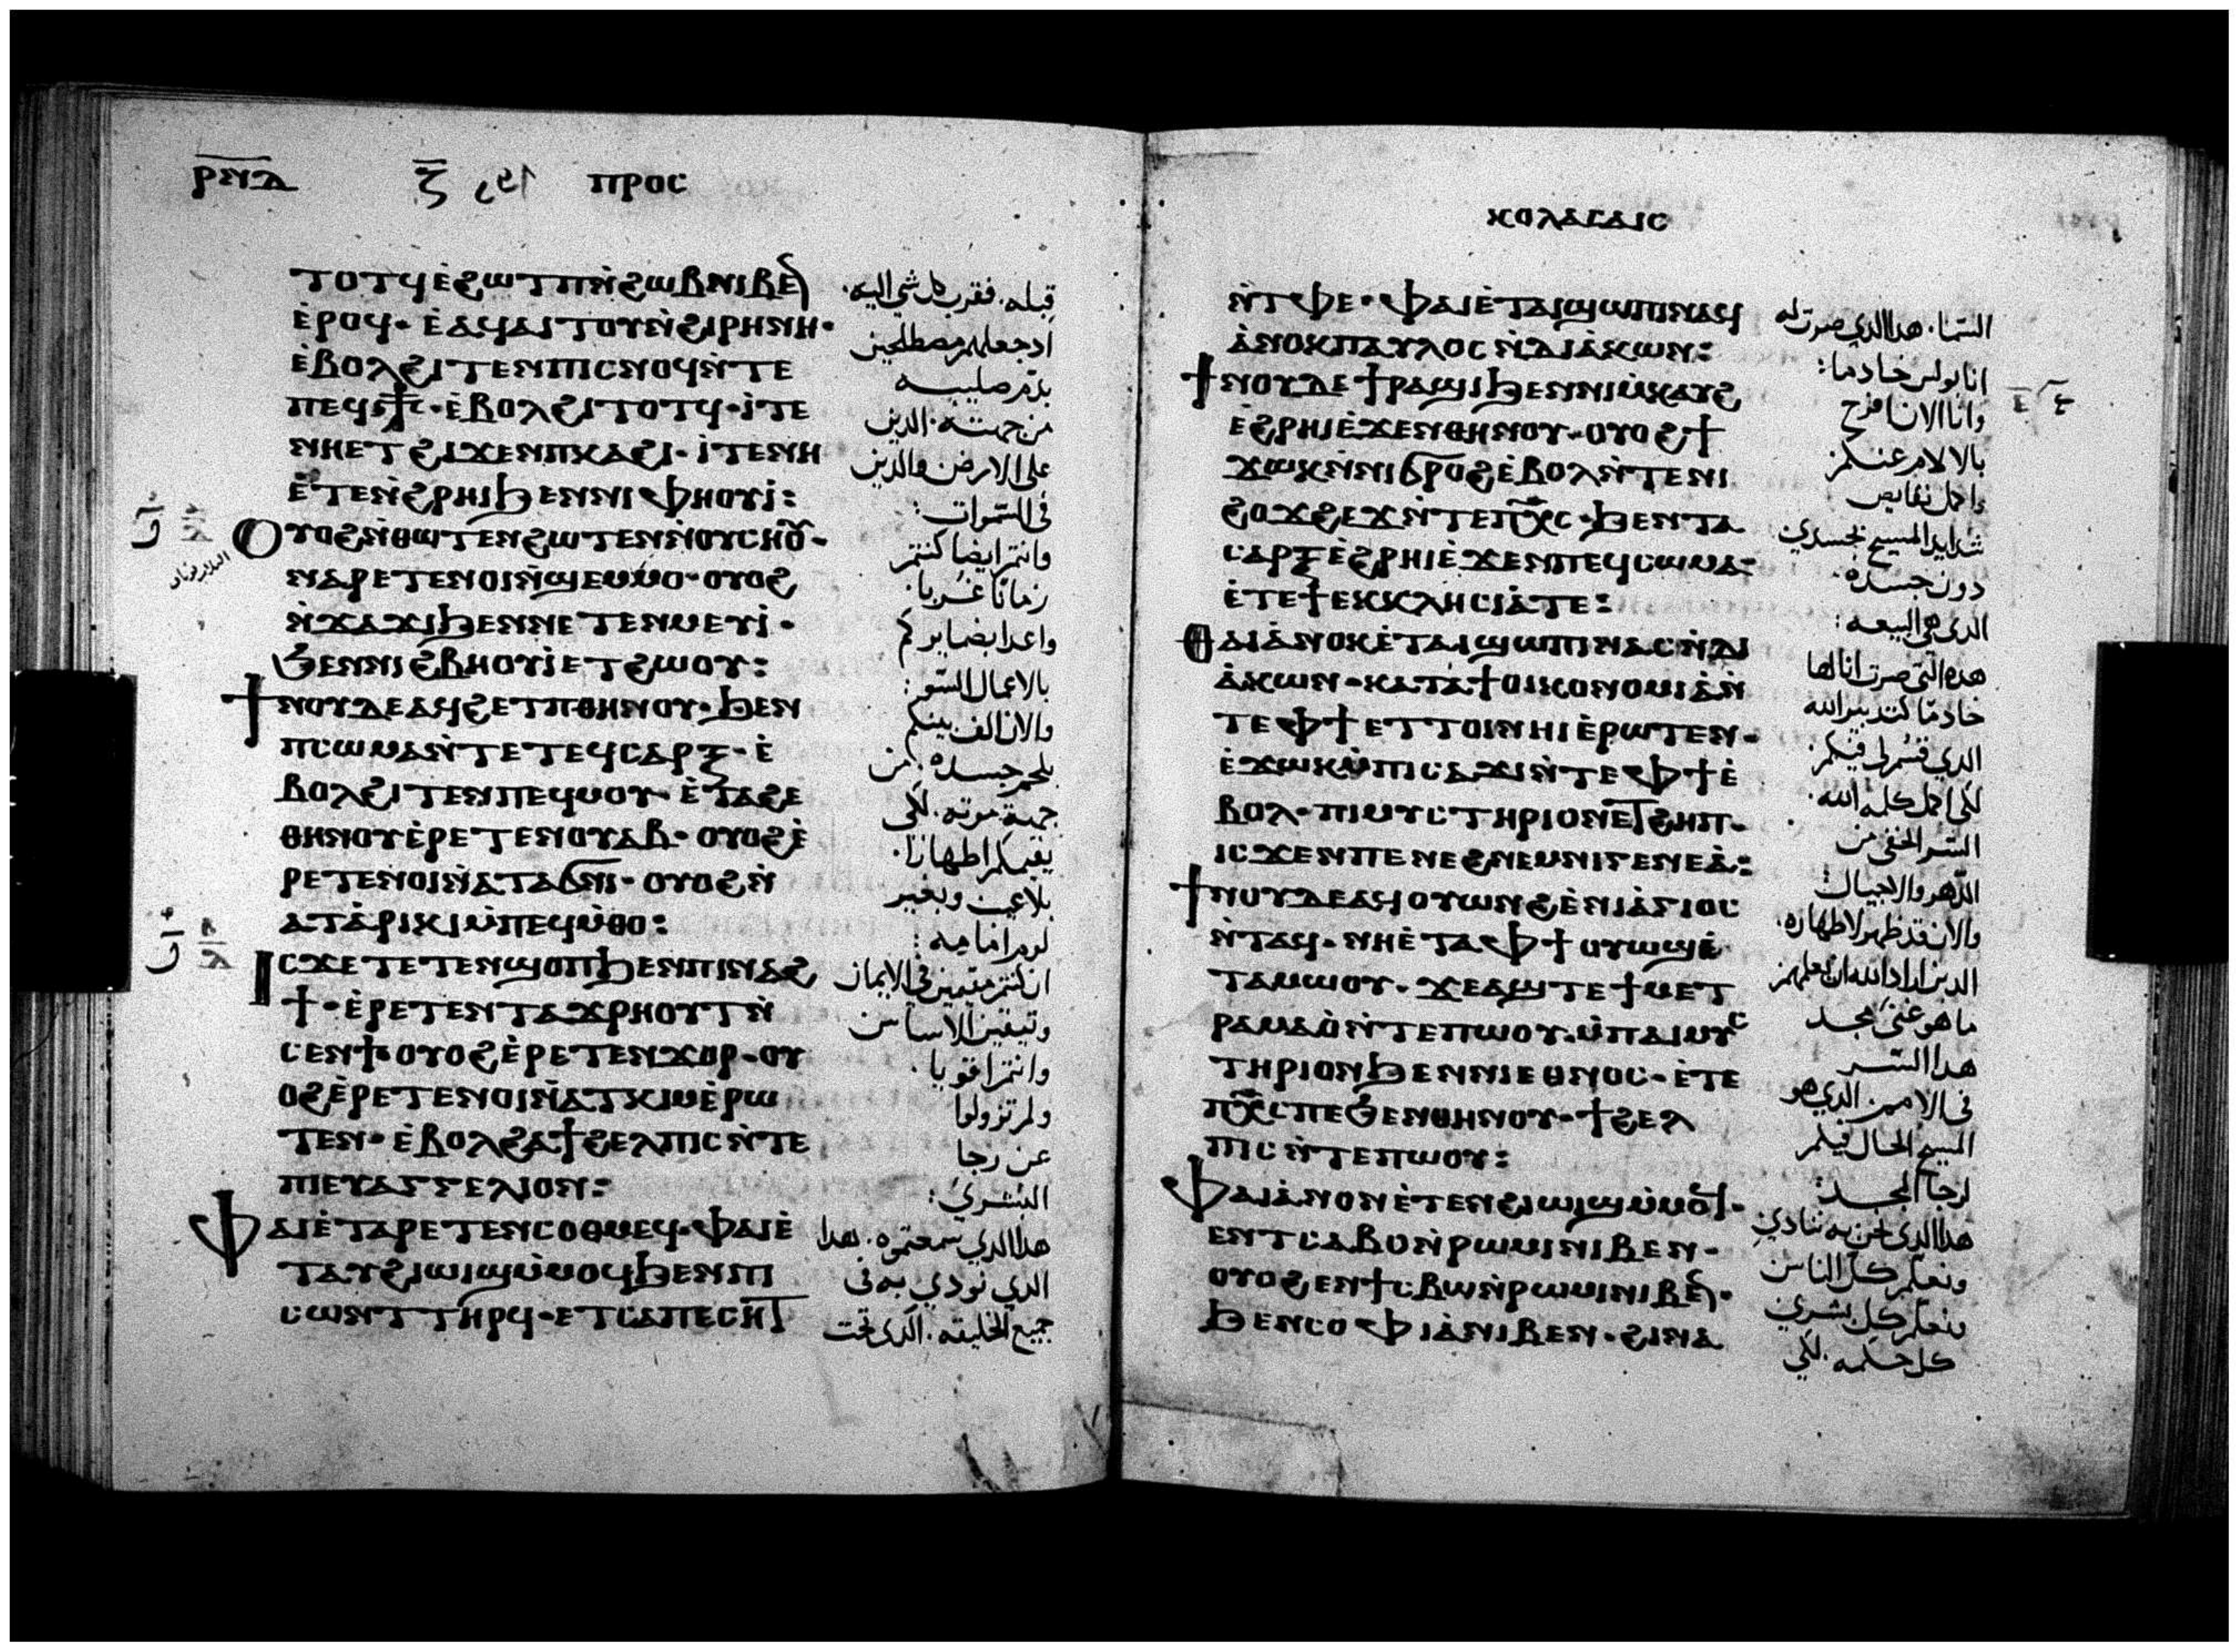 ⲣⲛⲇ ⲍ ⲡⲣⲟⲥ
ⲧⲟⲧϥⲉ̀ϩⲱⲧⲡⲛ̀ϩⲱⲃⲛⲓⲃⲉ̅
ⲉ̀ⲣⲟϥ· ⲉ̀ⲁϥⲁⲓⲧⲟⲩⲛ̀ϩⲓⲣⲏⲛⲏ·
ⲉ̀ⲃⲟⲗϩⲓⲧⲉⲛⲡⲓⲥⲛⲟϥⲛ̀ⲧⲉ
ⲡⲉϥⲥ⳨ⲥ·ⲉ̀ⲃⲟⲗϩⲓⲧⲟⲧϥ·ⲓ̀ⲧⲉ
ⲛⲏⲉⲧϩⲓϫⲉⲛⲡⲕⲁϩⲓ·ⲓ̀ⲧⲉⲛⲏ
ⲉ̀ⲧⲉⲛ̀ϩⲣⲏⲓϧⲉⲛⲛⲓⲫⲏⲟⲩⲓ̀:
ⲟⲩⲟϩⲛ̀ⲑⲱⲧⲉⲛϩⲱⲧⲉⲛⲛ̀ⲟⲩⲥⲏⲟⲩ·
ⲛⲁⲣⲉⲧⲉⲛⲟⲓⲛ̀ϣⲉⲙⲙⲟ·ⲟⲩⲟϩ
ⲛ̀ϫⲁϫⲓϧⲉⲛⲛⲉⲧⲉⲛⲙⲉⲩⲓ̀·
ϧⲉⲛⲛⲓϩⲃⲏⲟⲩⲓ̀ⲉⲧϩⲱⲟⲩ:
ϯⲛⲟⲩⲇⲉⲁϥϩⲉⲧⲡⲑⲏⲛⲟⲩ·ϧⲉⲛ
ⲡⲥⲱⲙⲁⲛ̀ⲧⲉⲧⲉϥⲥⲁⲣⲝ·ⲉ̀
ⲃⲟⲗϩⲓⲧⲉⲛⲡⲉϥⲙⲟⲩ·ⲉ̀ⲧⲁϩⲉ
ⲑⲏⲛⲟⲩⲉ̀ⲣⲉⲧⲉⲛⲟⲩⲁⲃ·ⲟⲩⲟϩⲉ̀
ⲣⲉⲧⲉⲛⲟⲓⲛ̀ⲁⲧⲁϭⲛⲓ·ⲟⲩⲟϩⲛ̀
ⲁⲧⲁ̀ⲣⲓⲕⲓⲙ̀ⲡⲉϥⲙ̀ⲑⲟ:
ⲓⲥϫⲉⲧⲉⲧⲉⲛϣⲟⲡϧⲉⲛⲡⲓⲛⲁϩ
ϯ·ⲉ̀ⲣⲉⲧⲉⲛⲧⲁϫⲣⲏⲟⲩⲧⲛ̀
ⲥⲉⲛϯⲟⲩⲟϩⲉ̀ⲣⲉⲧⲉⲛϫⲟⲣ·ⲟⲩ
ⲟϩⲉ̀ⲣⲉⲧⲉⲛⲟⲓⲛ̀ⲁⲧⲕⲓⲙⲉ̀ⲣⲱ
ⲧⲉⲛ·ⲉ̀ⲃⲟⲗϩⲁϯϩⲉⲗⲡⲓⲥⲛ̀ⲧⲉ
ⲡⲓⲉⲩⲁⲅⲅⲉⲗⲓⲟⲛ:
ⲫⲁⲓⲉ̀ⲧⲁⲣⲉⲧⲉⲛⲥⲟⲑⲙⲉϥ·ⲫⲁⲓⲉ̀
ⲧⲁⲩϩⲓⲱⲓϣⲙ̀ⲙⲟϥϧⲉⲛⲡⲓ
ⲥⲱⲛⲧⲧⲏⲣϥ·ⲉⲧⲥⲁⲡⲉⲥⲏⲧ
قبله. فقرب كل شي اليه.
اذ جعلهم مصطلحين
بدم صليبه
من جهته. الدين
على الارض والدين
فى السموات:
وانتم ايضا كنتم
زمانا غربا.
واعدا بضمايركم
بالاعمال السو:
والان الف بينكم
بلحم جسده. من
جهة موته. لكى
يقيمكم اطهارا.
بلا عيب وبغير
لوم امامه:
ان كنتم مقيمين فى الايمان
وثيقين الاساس
وانتم اقويا.
ولم تزولوا
عن رجا
البشري:
هدا الدي سمعتموه. هدا
الدي نودي به فى
جميع الخليقه. الدى تحت
ⲕⲟⲗⲁⲥⲁⲓⲥ
ⲛ̀ⲧⲫⲉ·ⲫⲁⲓⲉ̀ⲧⲁⲓϣⲱⲡⲓⲛⲁϥ
ⲁ̀ⲛⲟⲕⲡⲁⲩⲗⲟⲥⲛ̀ⲇⲓⲁ̀ⲕⲱⲛ:
ϯⲛⲟⲩⲇⲉϯⲣⲁϣⲓϧⲉⲛⲛⲓⲙ̀ⲕⲁⲩϩ
ⲉ̀ϩⲣⲏⲓⲉ̀ϫⲉⲛⲑⲏⲛⲟⲩ·ⲟⲩⲟϩϯ
ϫⲱⲕⲛ̀ⲛⲓϭⲣⲟϩⲉ̀ⲃⲟⲗⲛ̀ⲧⲉⲛⲓ
ϩⲟϫϩⲉϫⲛ̀ⲧⲉⲡⲭ̅ⲥ·ϧⲉⲛⲧⲁ
ⲥⲁⲣⲝⲉ̀ϩⲣⲏⲓⲉ̀ϫⲉⲛⲡⲉϥⲥⲱⲙⲁ:
ⲉ̀ⲧⲉϯⲉⲕⲕⲗⲏⲥⲓⲁ̀ⲧⲉ:
ⲑⲁⲓⲁ̀ⲛⲟⲕⲉ̀ⲧⲁⲓϣⲱⲡⲓⲛⲁⲥⲛ̀ⲇⲓ
ⲁ̀ⲕⲱⲛ·ⲕⲁⲧⲁϯⲟⲓⲕⲟⲛⲟⲙⲓⲁ̀ⲛ̀
ⲧⲉⲫϯⲉⲧⲧⲟⲓⲛⲏⲓⲉ̀ⲣⲱⲧⲉⲛ·
ⲉ̀ϫⲱⲕⲙ̀ⲡⲓⲥⲁϫⲓⲛ̀ⲧⲉⲫϯⲉ̀
ⲃⲟⲗ·ⲡⲓⲙⲩⲥⲧⲏⲣⲓⲟⲛⲉⲧϩⲏⲡ·
ⲓⲥϫⲉⲛⲡⲉⲛⲉϩⲛⲉⲙⲛⲓⲅⲉⲛⲉⲁ̀:
ϯⲛⲟⲩⲇⲉⲁϥⲟⲩⲱⲛϩⲉ̀ⲛⲓⲁ̀ⲅⲓⲟⲥ
ⲛ̀ⲧⲁϥ·ⲛⲏⲉ̀ⲧⲁⲫϯⲟⲩⲱϣⲉ̀
ⲧⲁⲙⲱⲟⲩ·ϫⲉⲁϣⲧⲉϯⲙⲉⲧ
ⲣⲁⲙⲁⲟ̀ⲛ̀ⲧⲉⲡⲱⲟⲩ·ⲙ̀ⲡⲁⲓⲙⲩⲥ
ⲧⲏⲣⲓⲟⲛϧⲉⲛⲛⲓⲉⲑⲛⲟⲥ·ⲉ̀ⲧⲉ
ⲡⲭ̅ⲥⲡⲉϧⲉⲛⲑⲏⲛⲟⲩ·ϯϩⲉⲗ
ⲡⲓⲥⲛ̀ⲧⲉⲡⲱⲟⲩ:
ⲫⲁⲓⲁ̀ⲛⲟⲛⲉ̀ⲧⲉⲛϩⲓⲱⲓϣⲙ̀ⲙⲟϥ·
ⲉⲛⲧⲥⲁⲃⲟⲛ̀ⲣⲱⲙⲓⲛⲓⲃⲉⲛ·
ⲟⲩⲟϩⲉⲛϯⲥⲃⲱⲛ̀ⲣⲱⲙⲓⲛⲓⲃⲉ̅·
ϧⲉⲛⲥⲟⲫⲓⲁ̀ⲛⲓⲃⲉⲛ·ϩⲓⲛⲁ
السما. هدا الدي صرت له
انا بولس خادما:
وانا الان افرح
بالالام عنكم
واكمل نقايص
شدايد المسيح بجسدي
دون جسده.
الدى هي البيعه:
هده التى صرت انا لها
خادما كتدبير الله
الدي قسم لي فيكم
لكى اكمل كلمه الله.
السر الخفى من
الدهر والاجيال:
والان قد ظهر لاطهاره.
الدين اراد الله ان يعلمهم
ما هو غنى مجد
هدا السر
فى الامم. الدي هو
المسيح الحال فيكم
لرجا المجد:
هدا الدى نحن به ننادي
ونعلم كل الناس
ونعلم كل بشري
كل حكمه. لكى